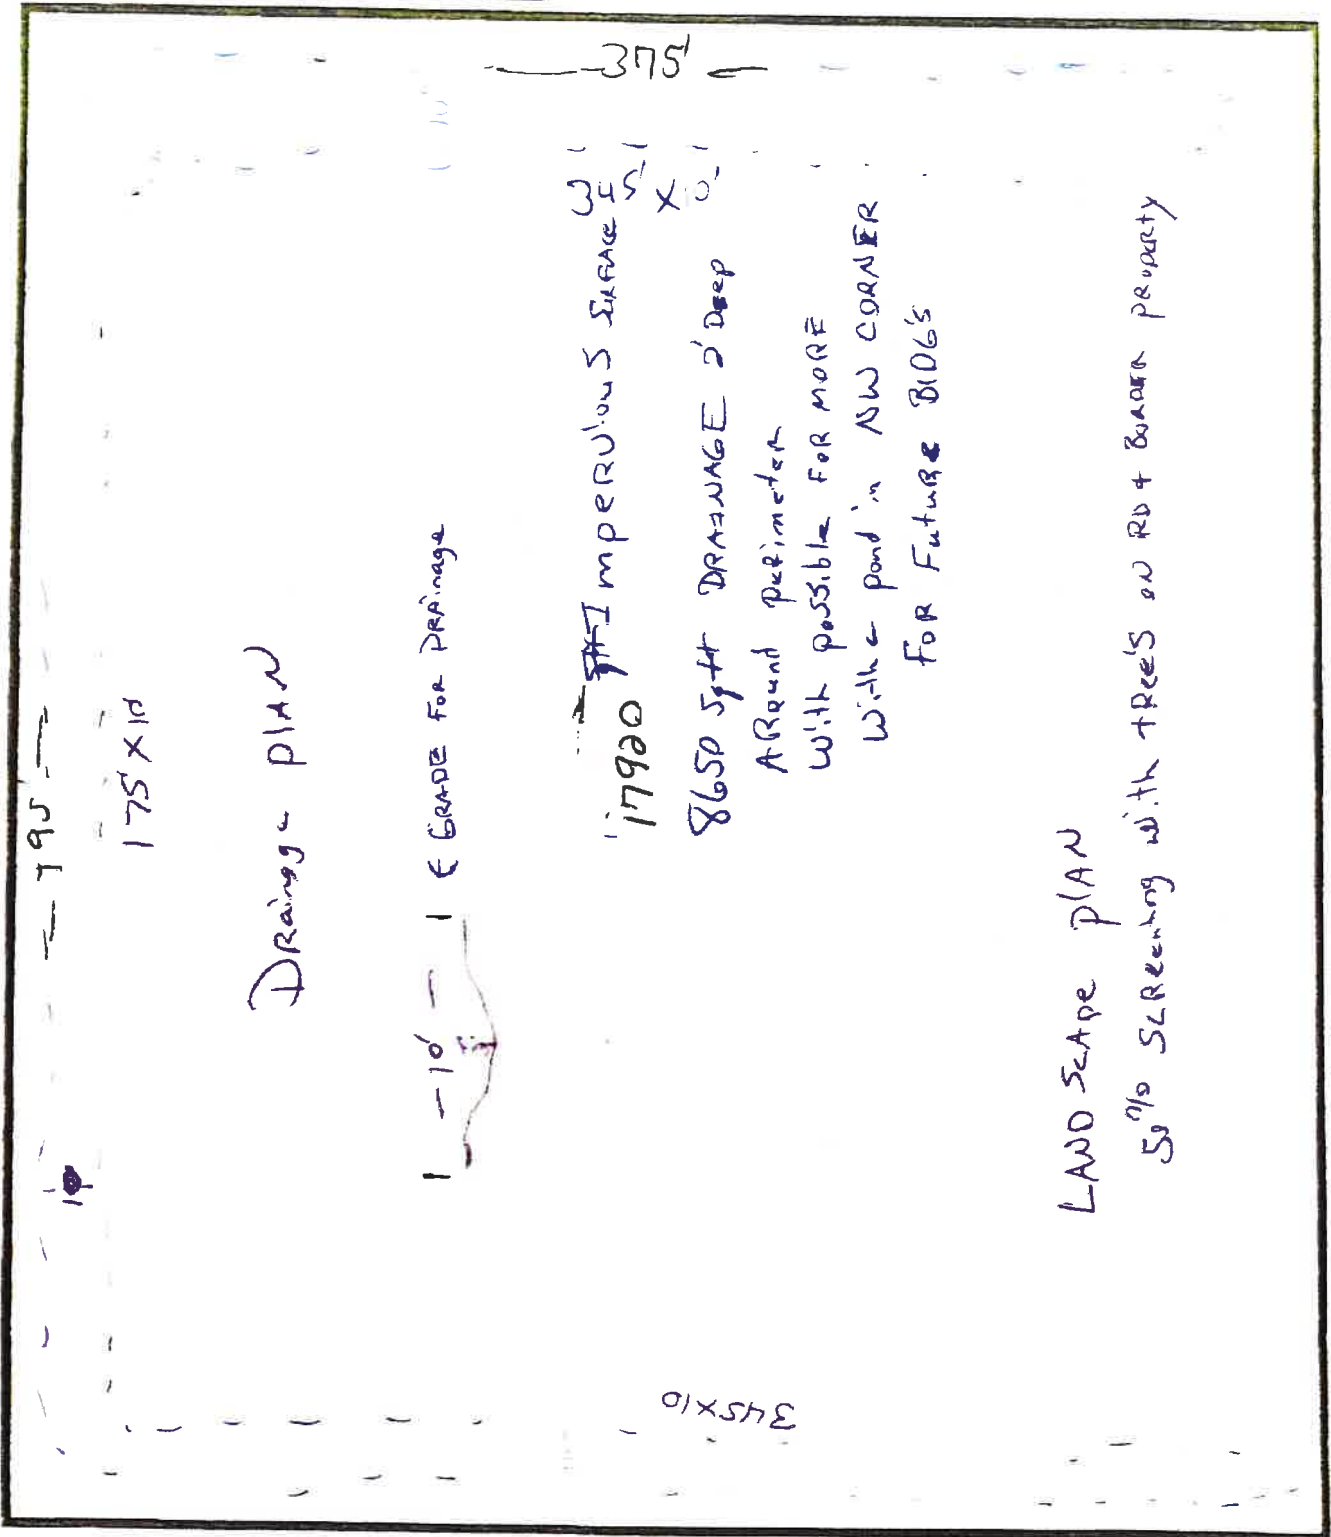 375'
195
175 X 10'
10
DRainage plAN
10'
← GRADE FOR DRAinage
345' X 10'
17920 ImpeRViouS SURFACE
8650 Sqft DRAINAGE 2' Deep
ARound peRimeteR
With possible FOR MORE
With a pond in NW CORNER
FOR FutuRe BlDG'S
345X10
LANDScApe plAN
50% ScReening with tRee'S ON RD + BORDER pROpeRty